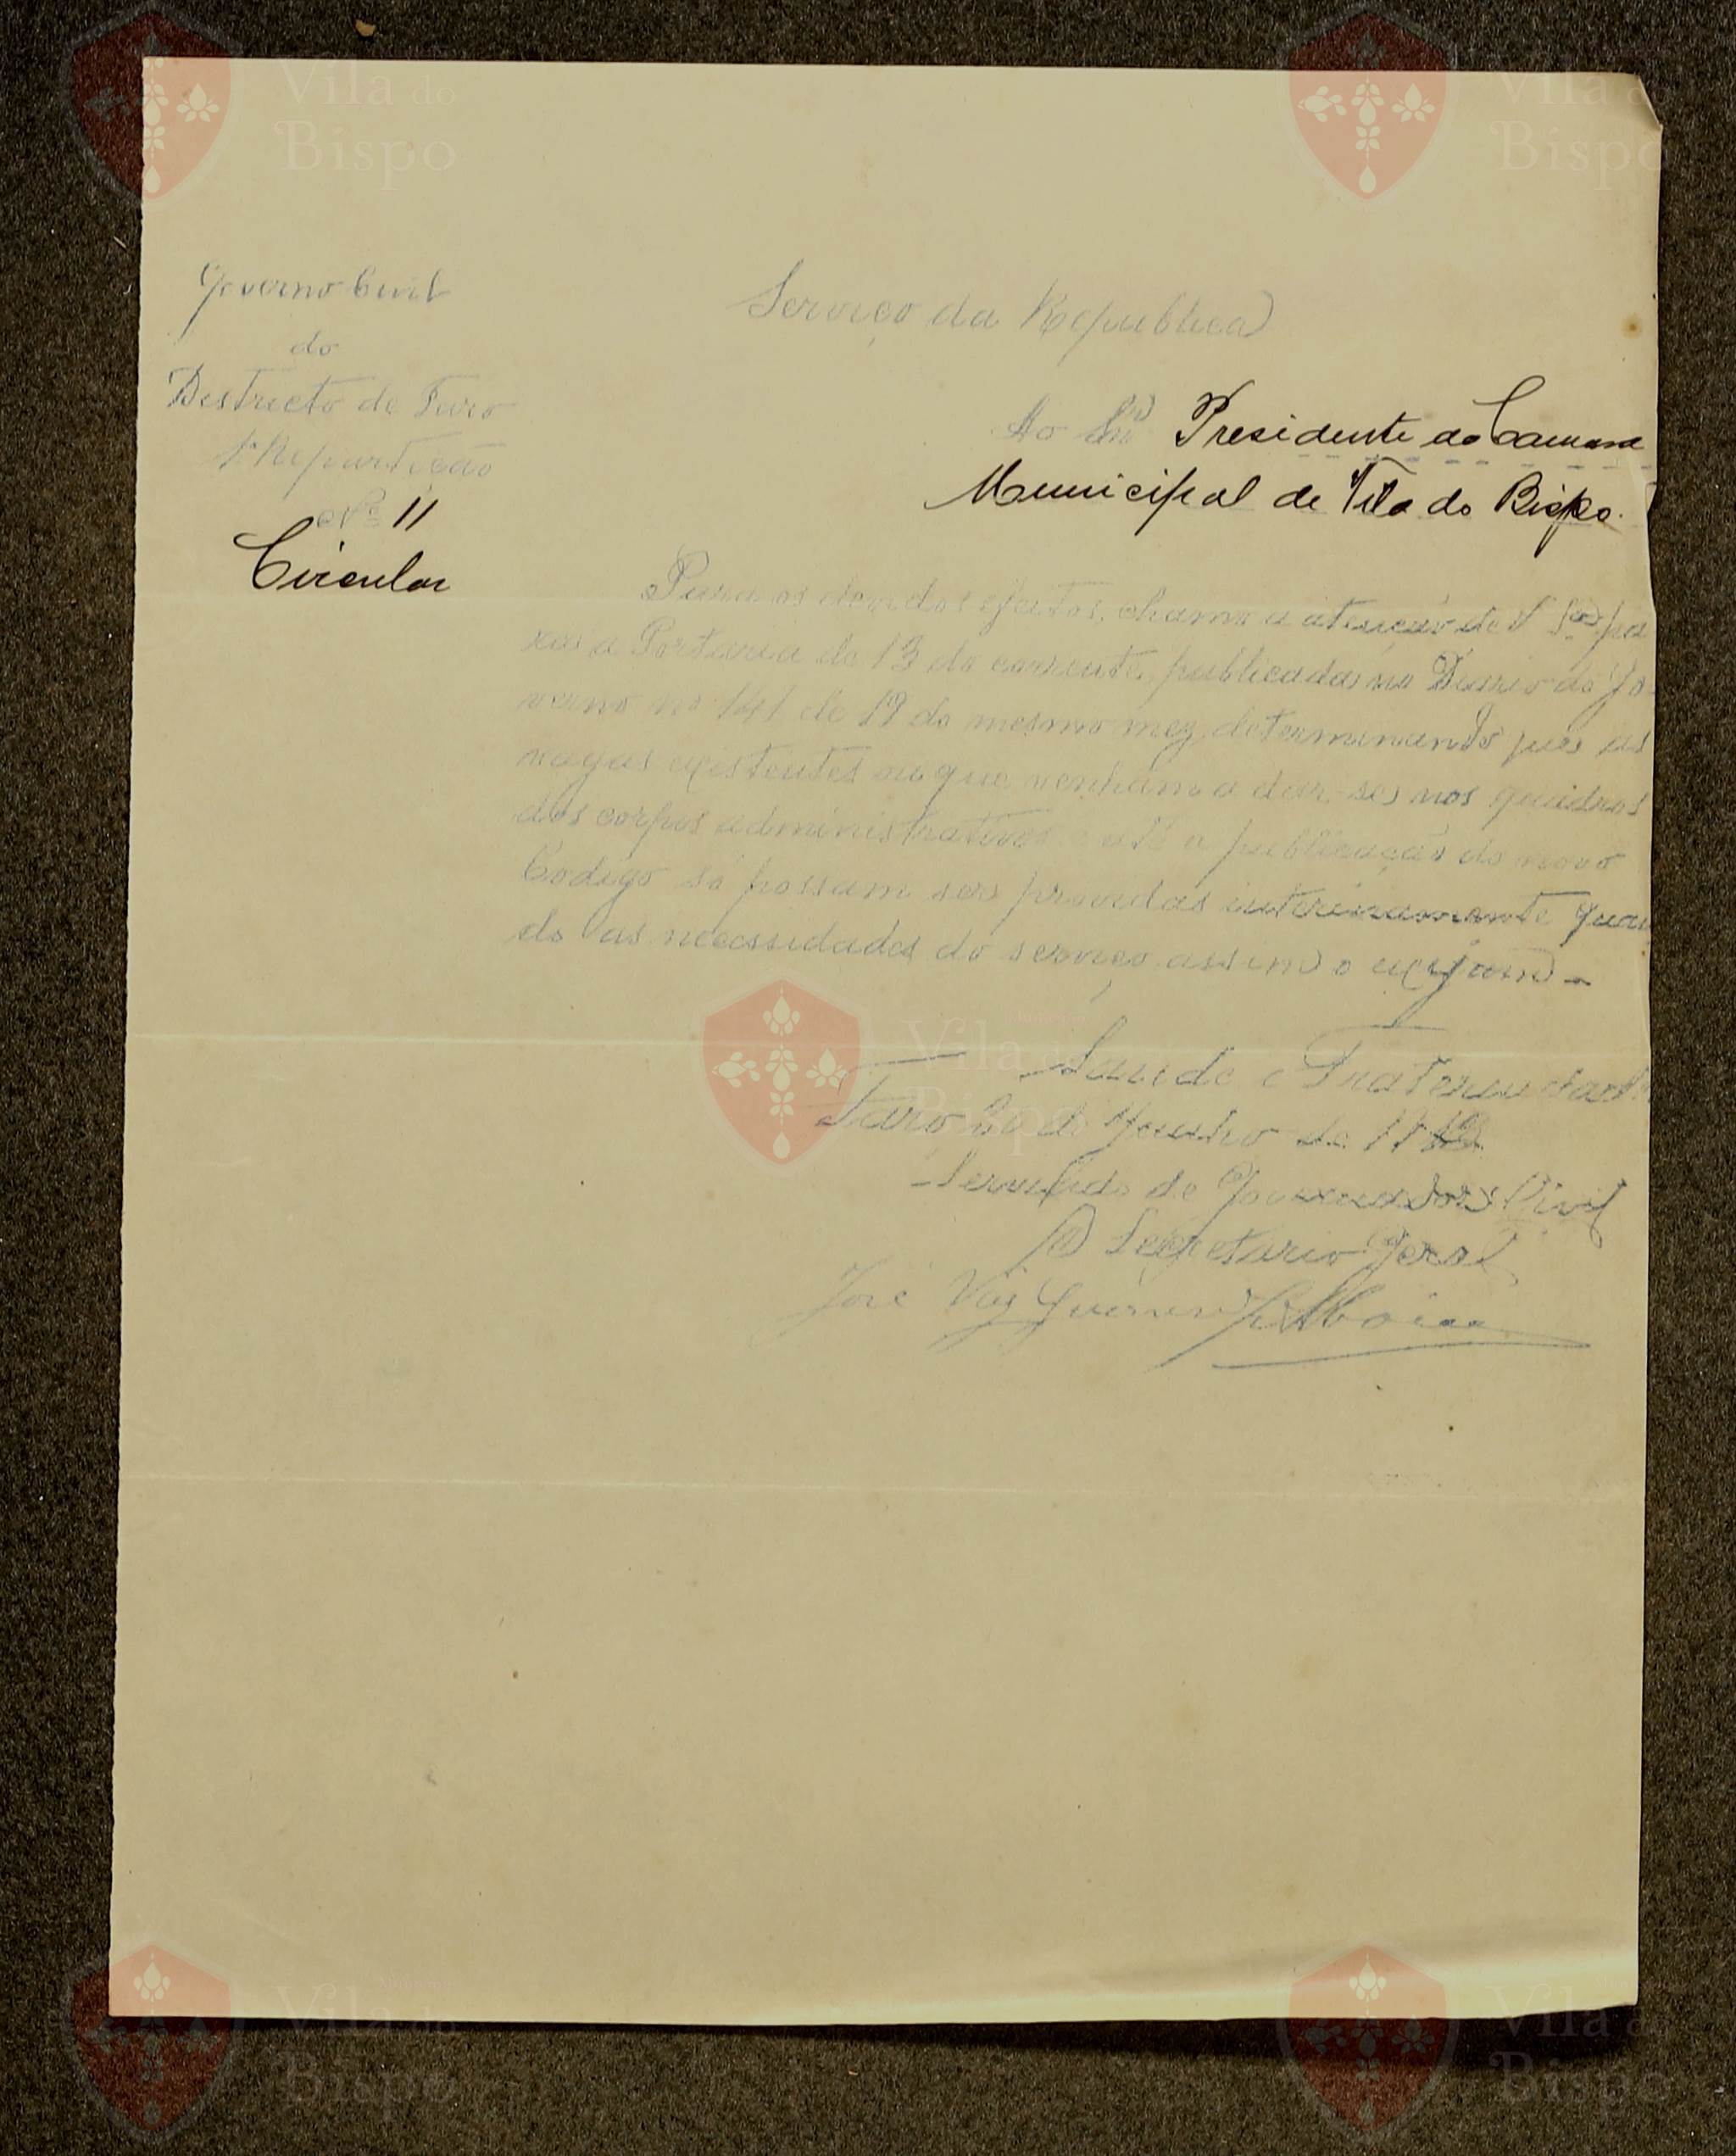 Governo Civil
do
Districto de Faro
1ª Repartição
Nº 11
Circular
Serviço da Republica
Ao Snr Presidente da Camara
Municipal de Vila do Bispo.
Para os devidos efeitos, chamo a atenção de V. Sª pa
ra a Portaria de 13 do corrente, publicada no Diario do Go-
verno nº 141 de 19 do mesmo mez, determinando que as
vagas existentes ou que venham a dar-se nos quadros
dos corpos administrativos e até a publicação do novo
Codigo só possam ser providas interinamente quan
do as necessidades do serviço assim o exijam -
Saude e Fraternidade
Faro de Junho de
Servindo de Governador Civil
O Secretario Geral
José Vaz Guerreiro
Vila do
Bispo
Vila do
Bispo
Vila do
Bispo
Vila do
Bispo
Vila do
Bispo